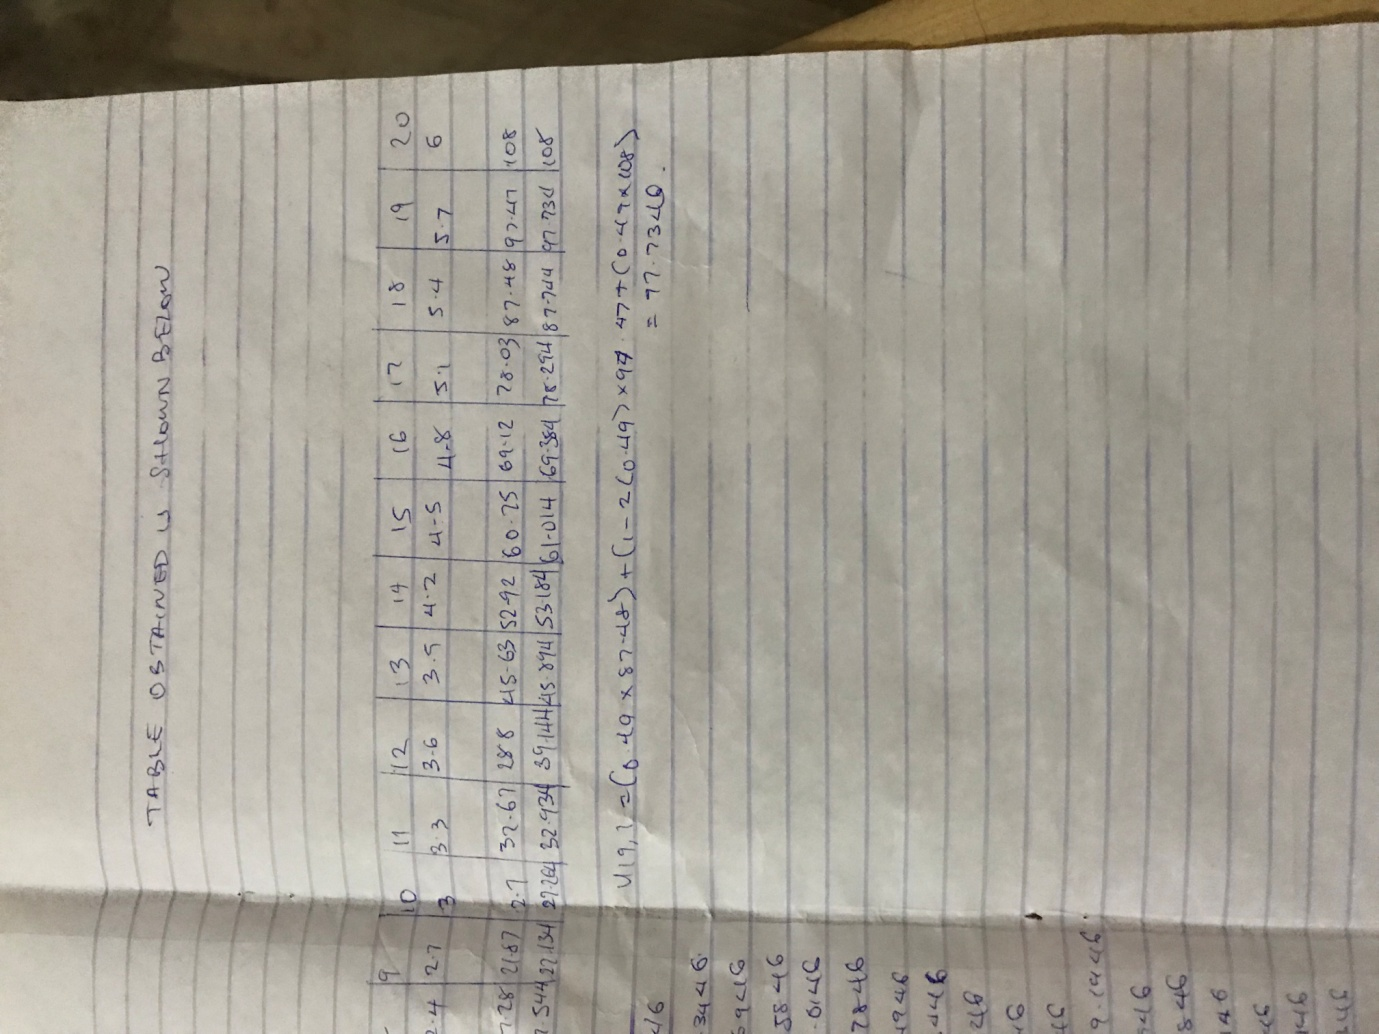 TABLE OBTAINED IS SHOWN BELOW
9 10 11 12 13 14 15 16 17 18 19 20
2.4 2.7 3 3.3 3.6 3.9 4.2 4.5 4.8 5.1 5.4 5.7 6
7.28 21.87 2.7 32.67 288 45.63 52.92 60.75 69.12 78.03 87.48 97.47 108
7.544 22.134 27.264 32.934 39.144 45.894 53.184 61.014 69.384 78.294 87.744 97.734 108
U19,1 = (0.49 x 87.48) + (1 - 2(0.49) x 97.47 + (0.49 x 108)
= 97.7346.
46
3446.
6946
5846
.0146
7846
4946
.4446
246
46
46
9.1446
946
8.46
146
46
46
46